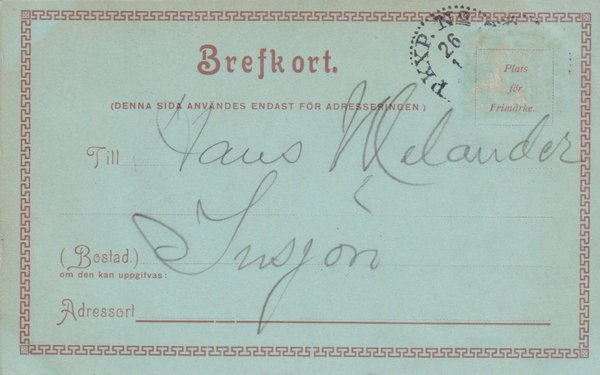 PKXP. N
26
Brefkort.
Plats
för
Frimärke.
(DENNA SIDA ANVÄNDES ENDAST FÖR ADRESSERINGEN.)
Till Hans Melander
Insjön
(Bostad.)
om den kan uppgifvas:
Adressort